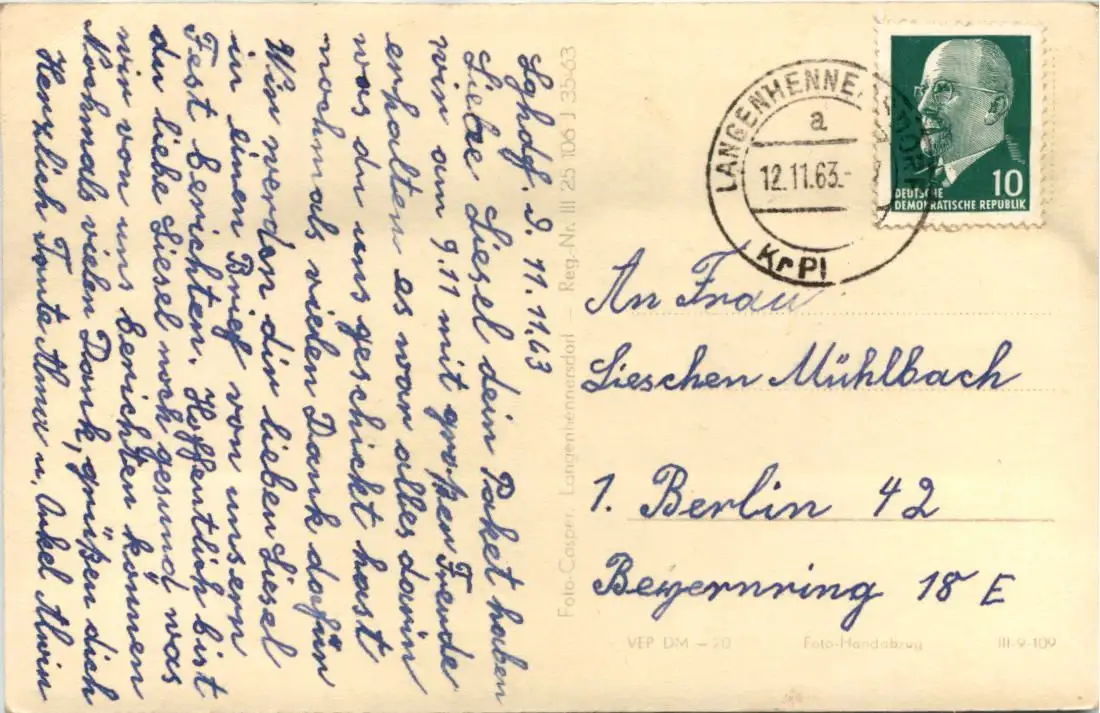 Lghdf. d. 11.11.63
Liebe Liesel dein Paket haben
wir am 9.11 mit großer Freude
erhalten es war alles darin
was du uns geschickt hast
nochmals vielen Dank dafür
Wir werden dir lieben Liesel
in einen Brief von unsern
Fest berichten. Hoffentlich bist
du liebe Liesel noch gesund was
wir von uns berichten können
Nochmals vielen Dank, grüßen dich
Herzlich Tante Alma u. Onkel Alwin
Foto-Casper, Langenhennersdorf – Reg.-Nr. III 25 106 J 35-63
LANGENHENNERSDORF
a
12.11.63.-
Kr PI
10
DEUTSCHE
DEMOKRATISCHE REPUBLIK
An Frau
Lieschen Mühlbach
1. Berlin 42
Beyernring 18 E
VEP DM – 20 Foto-Handabzug III-9-109